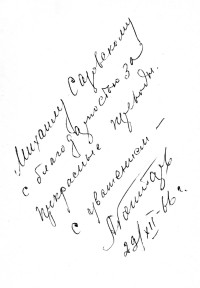 Михаилу Садовскому
с благодарностью за
прекрасные переводы.
С уважением —
29/XII-66 г.